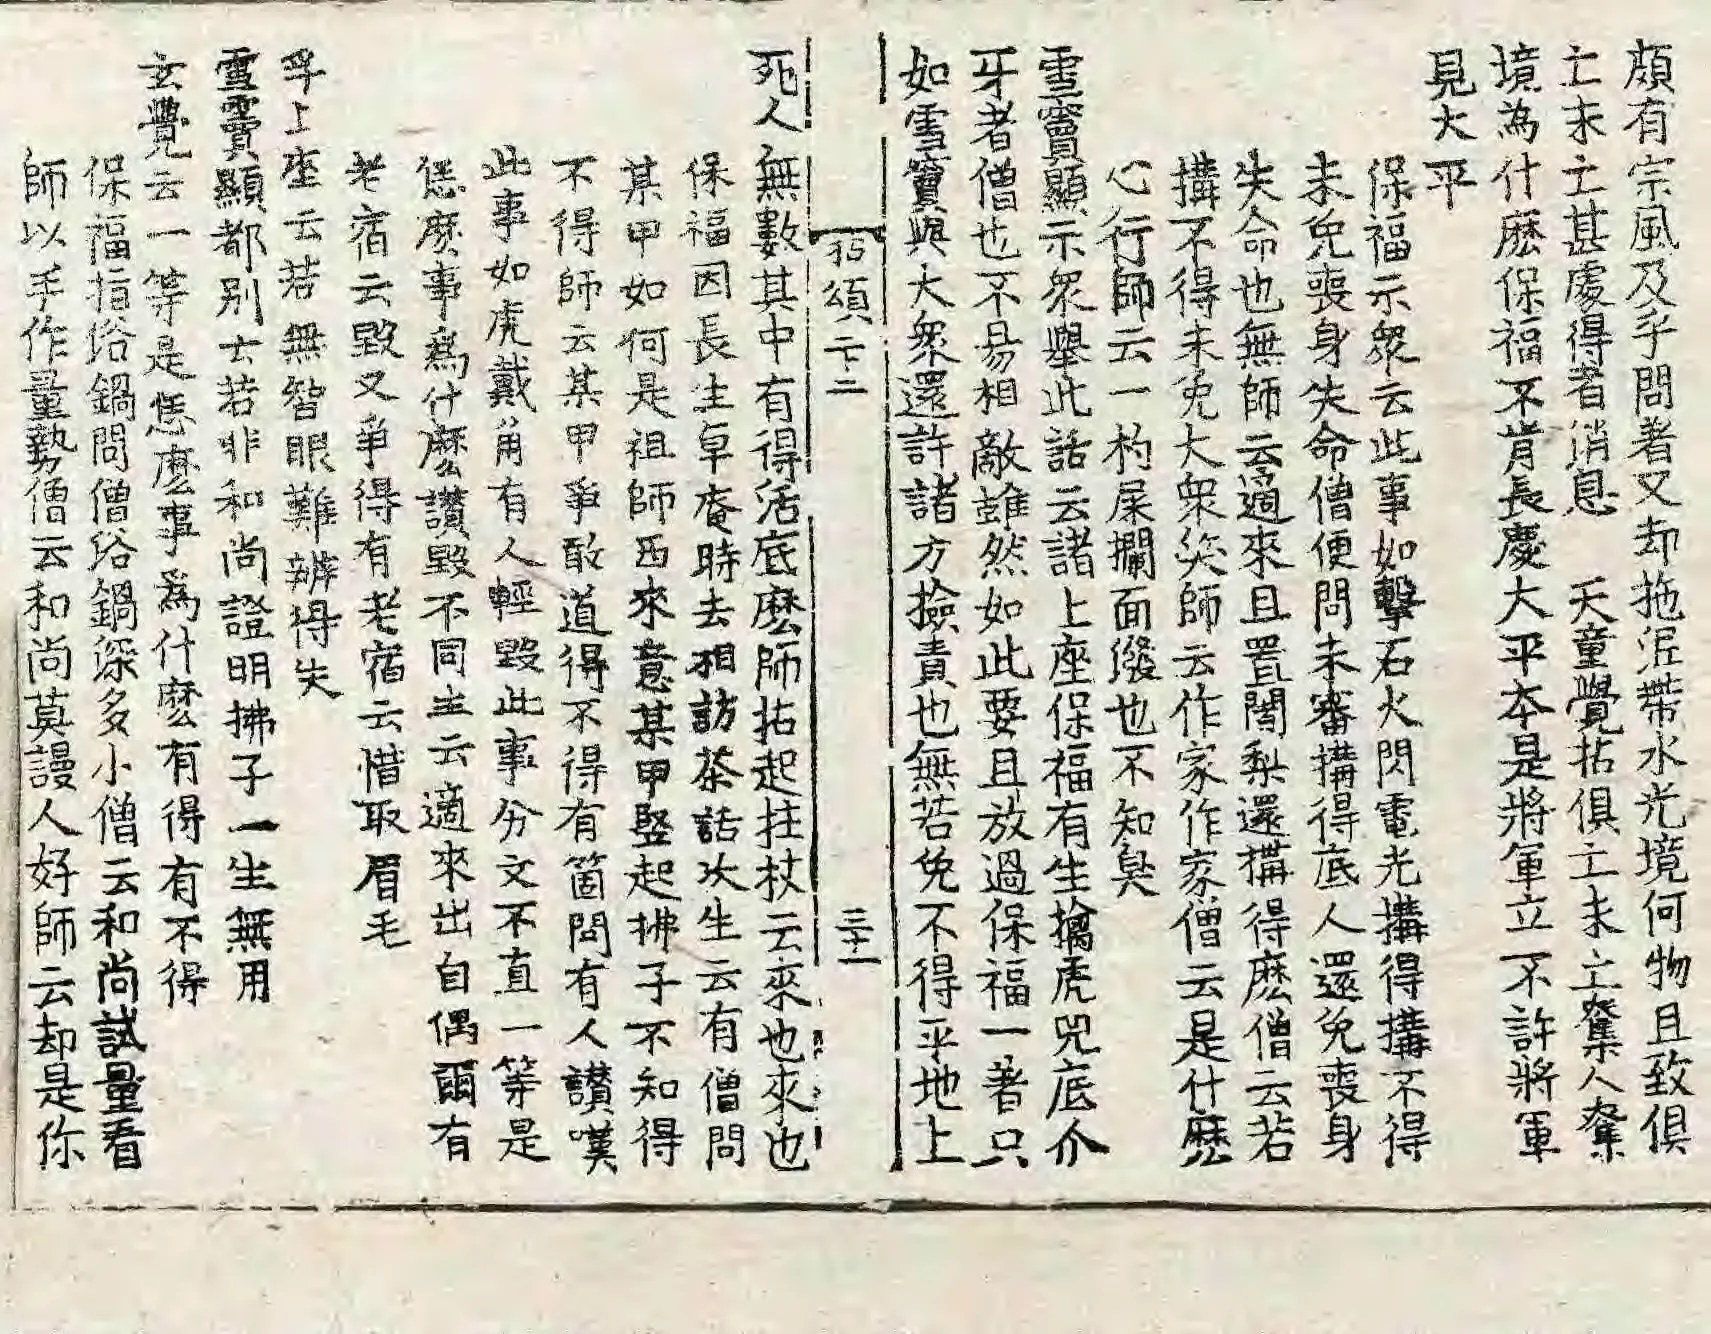 頗有宗風及乎問著又却拖泥帶水光境何物且致俱
亡未亡甚處得者消息　天童覺拈俱亡未亡奪人奪
境為什麽保福不肯長慶大平本是將軍立不許將軍
見大平
保福示衆云此事如擊石火閃電光搆得搆不得
未免喪身失命僧便問未審搆得底人還免喪身
失命也無師云適來且置闍梨還搆得麽僧云若
搆不得未免大衆笑師云作家作家僧云是什麽
心行師云一杓屎攔面潑也不知臭
雪竇顯示衆擧此話云諸上座保福有生擒虎兕底介
牙者僧也不易相敵雖然如此要且放過保福一著只
如雪竇與大衆還許諸方撿責也無若免不得平地上
拈頌二十二
三十一
死人無數其中有得活底麽師拈起拄杖云來也來也
保福因長生卓庵時去相訪茶話次生云有僧問
某甲如何是祖師西來意某甲竪起拂子不知得
不得師云某甲爭敢道得不得有箇問有人讃嘆
此事如虎戴角有人輕毀此事分文不直一等是
恁麽事爲什麽讃毀不同生云適來出自偶爾有
老宿云毀又爭得有老宿云惜取眉毛
孚上座云若無智眼難辨得失
雪竇顯都别云若非和尚證明拂子一生無用
玄覺云一等是恁麽事爲什麽有得有不得
保福指浴鍋問僧浴鍋深多小僧云和尚試量看
師以手作量勢僧云和尚莫謾人好師云却是你